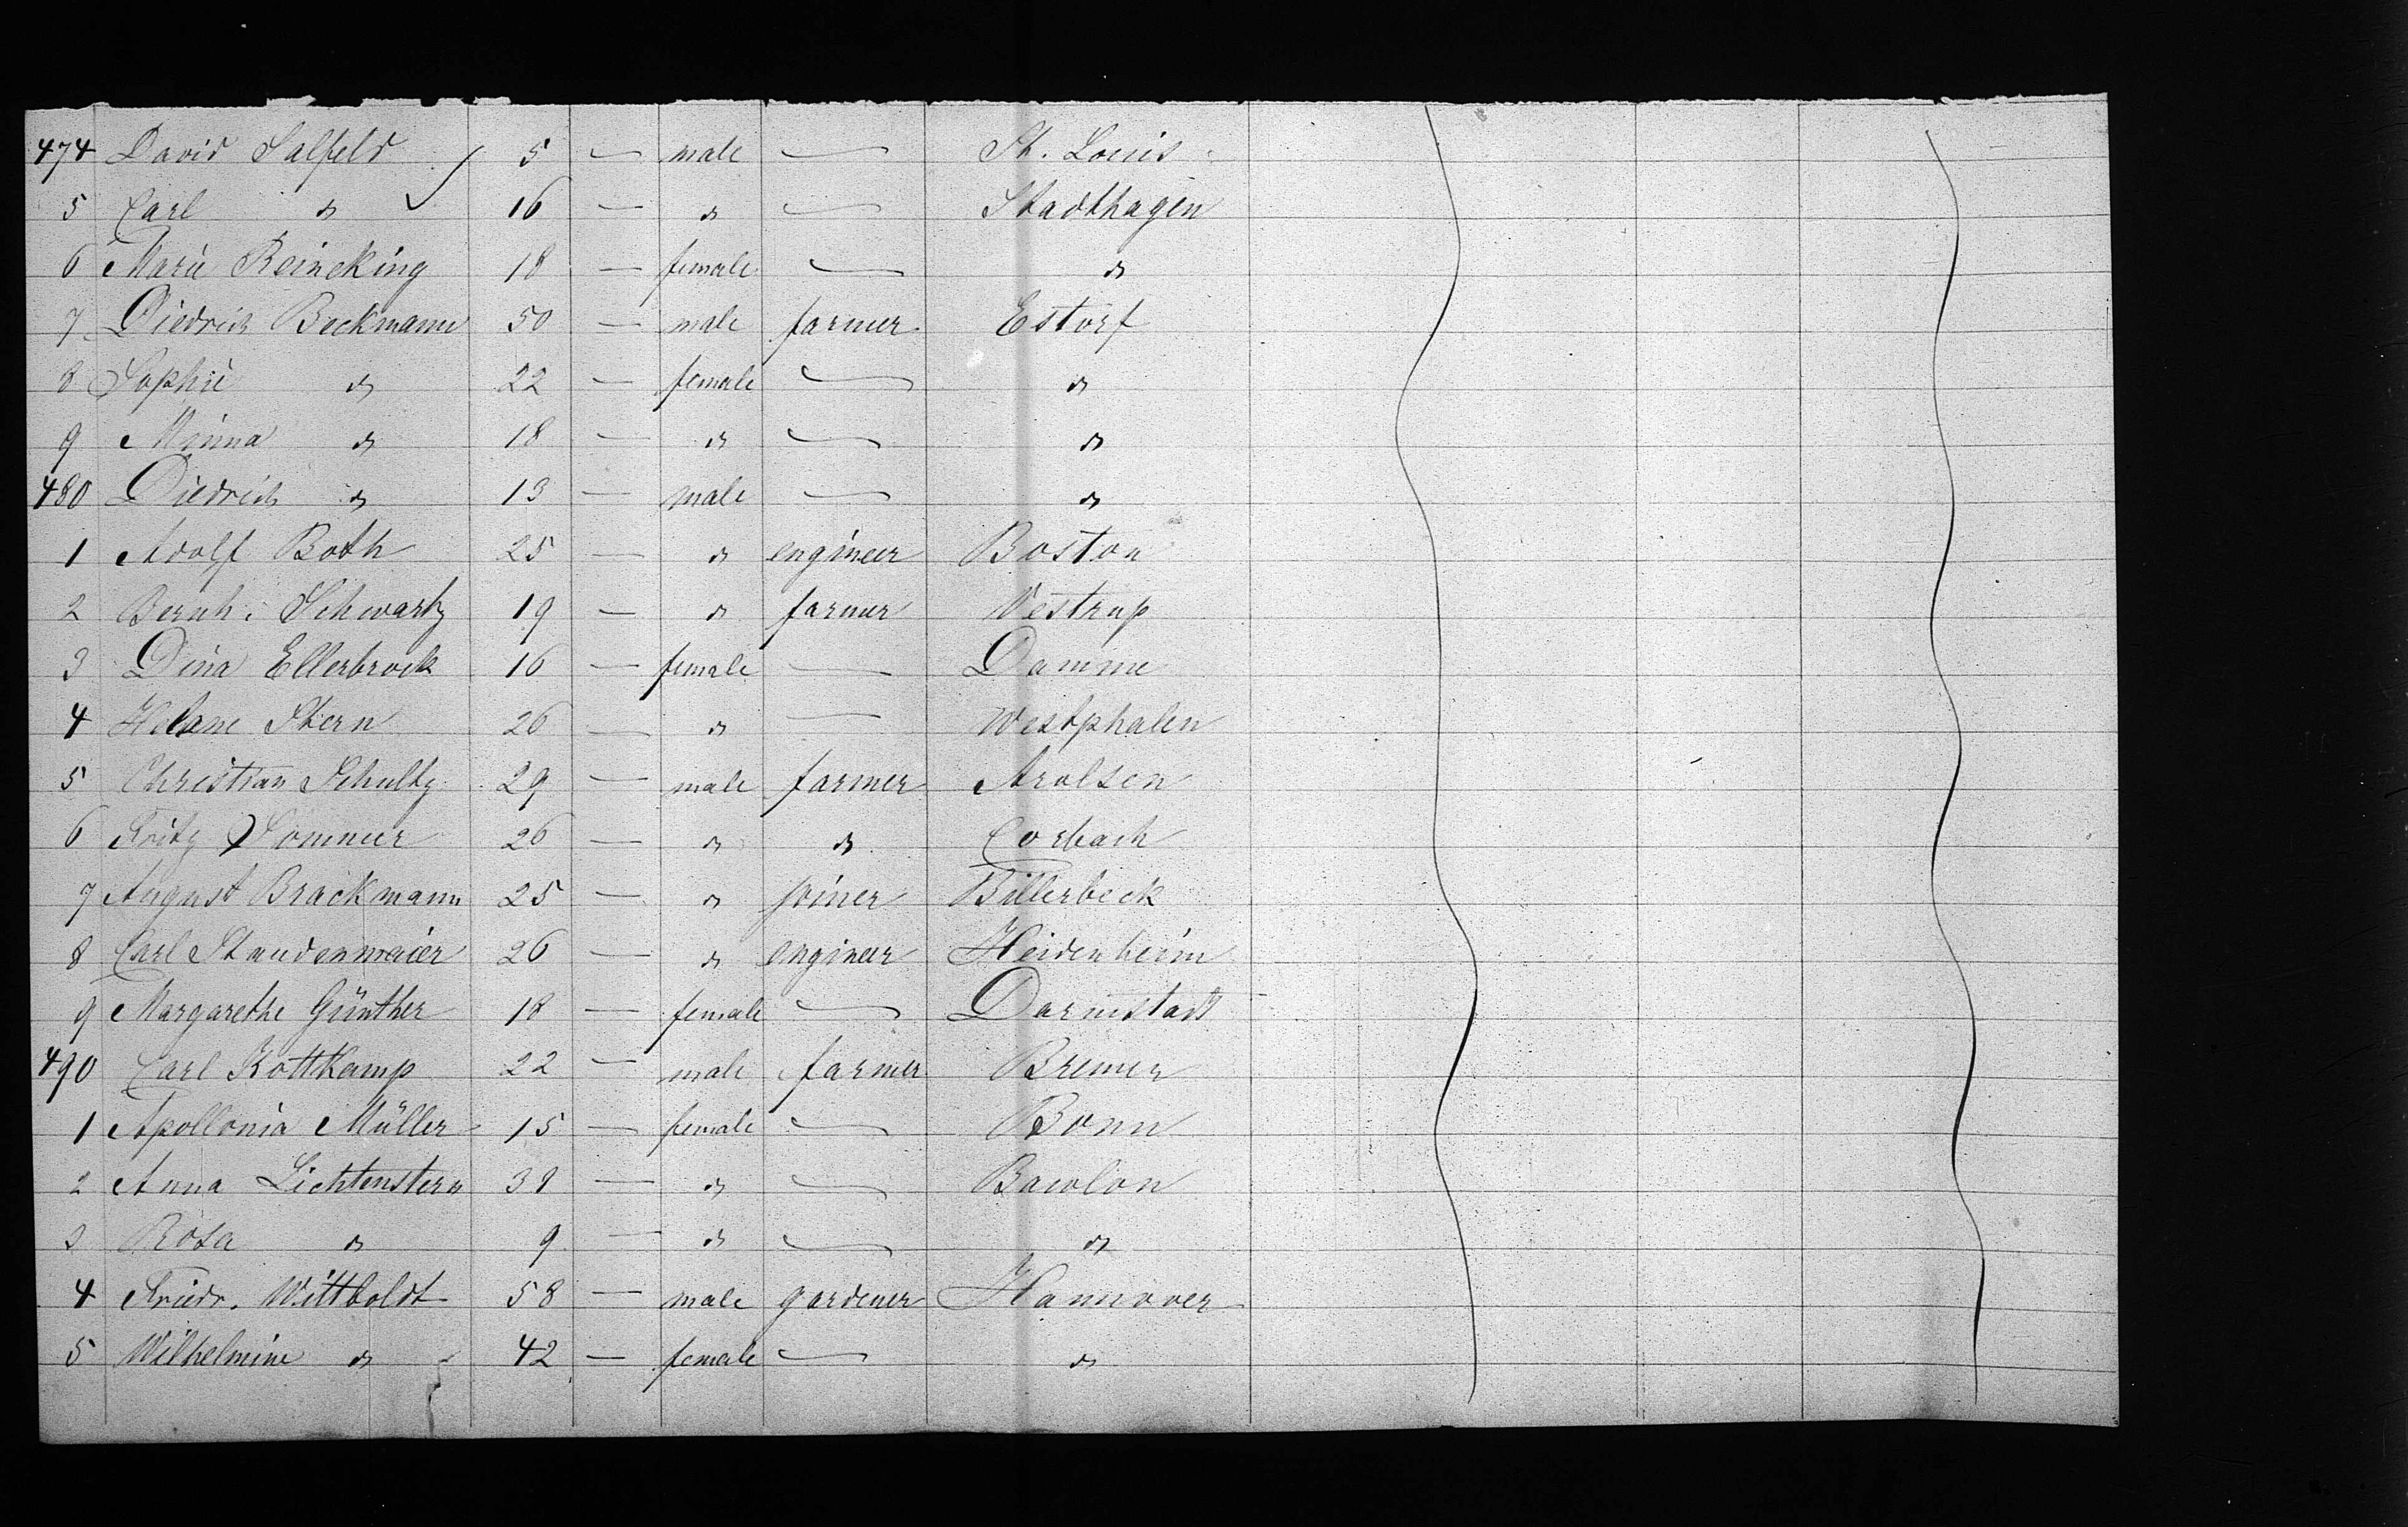 474 David Salfeld 5 — male — St. Louis
5 Carl " 16 — " — Stadthagen
6 Marie Reineking 18 — female — "
7 Diedrich Beckmann 50 — male farmer Estorf
8 Sophie " 22 — female — "
9 Minna " 18 — " — "
480 Diedrich " 13 — male — "
1 Adolf Both 25 — " engineer Boston
2 Bernh. Schwartz 19 — " farmer Westrup
3 Dina Ellerbrock 16 — female — Damme
4 Helene Stern 26 — " — Westphalen
5 Christian Schultz 29 — male farmer Arolsen
6 Fritz Sommer 26 — " " Corbach
7 August Brackmann 25 — " joiner Billerbeck
8 Carl Staudenmaier 26 — " engineer Heidenheim
9 Margarethe Günther 18 — female — Darmstadt
490 Carl Kottkamp 22 — male farmer Bremen
1 Apollonia Müller 15 — female — Bonn
2 Anna Lichtenstern 38 — " —
3 Rosa " 9 — " — "
4 Friedr. Wittboldt 58 — male gardener Hannover
5 Wilhelmine " 42 — female — "